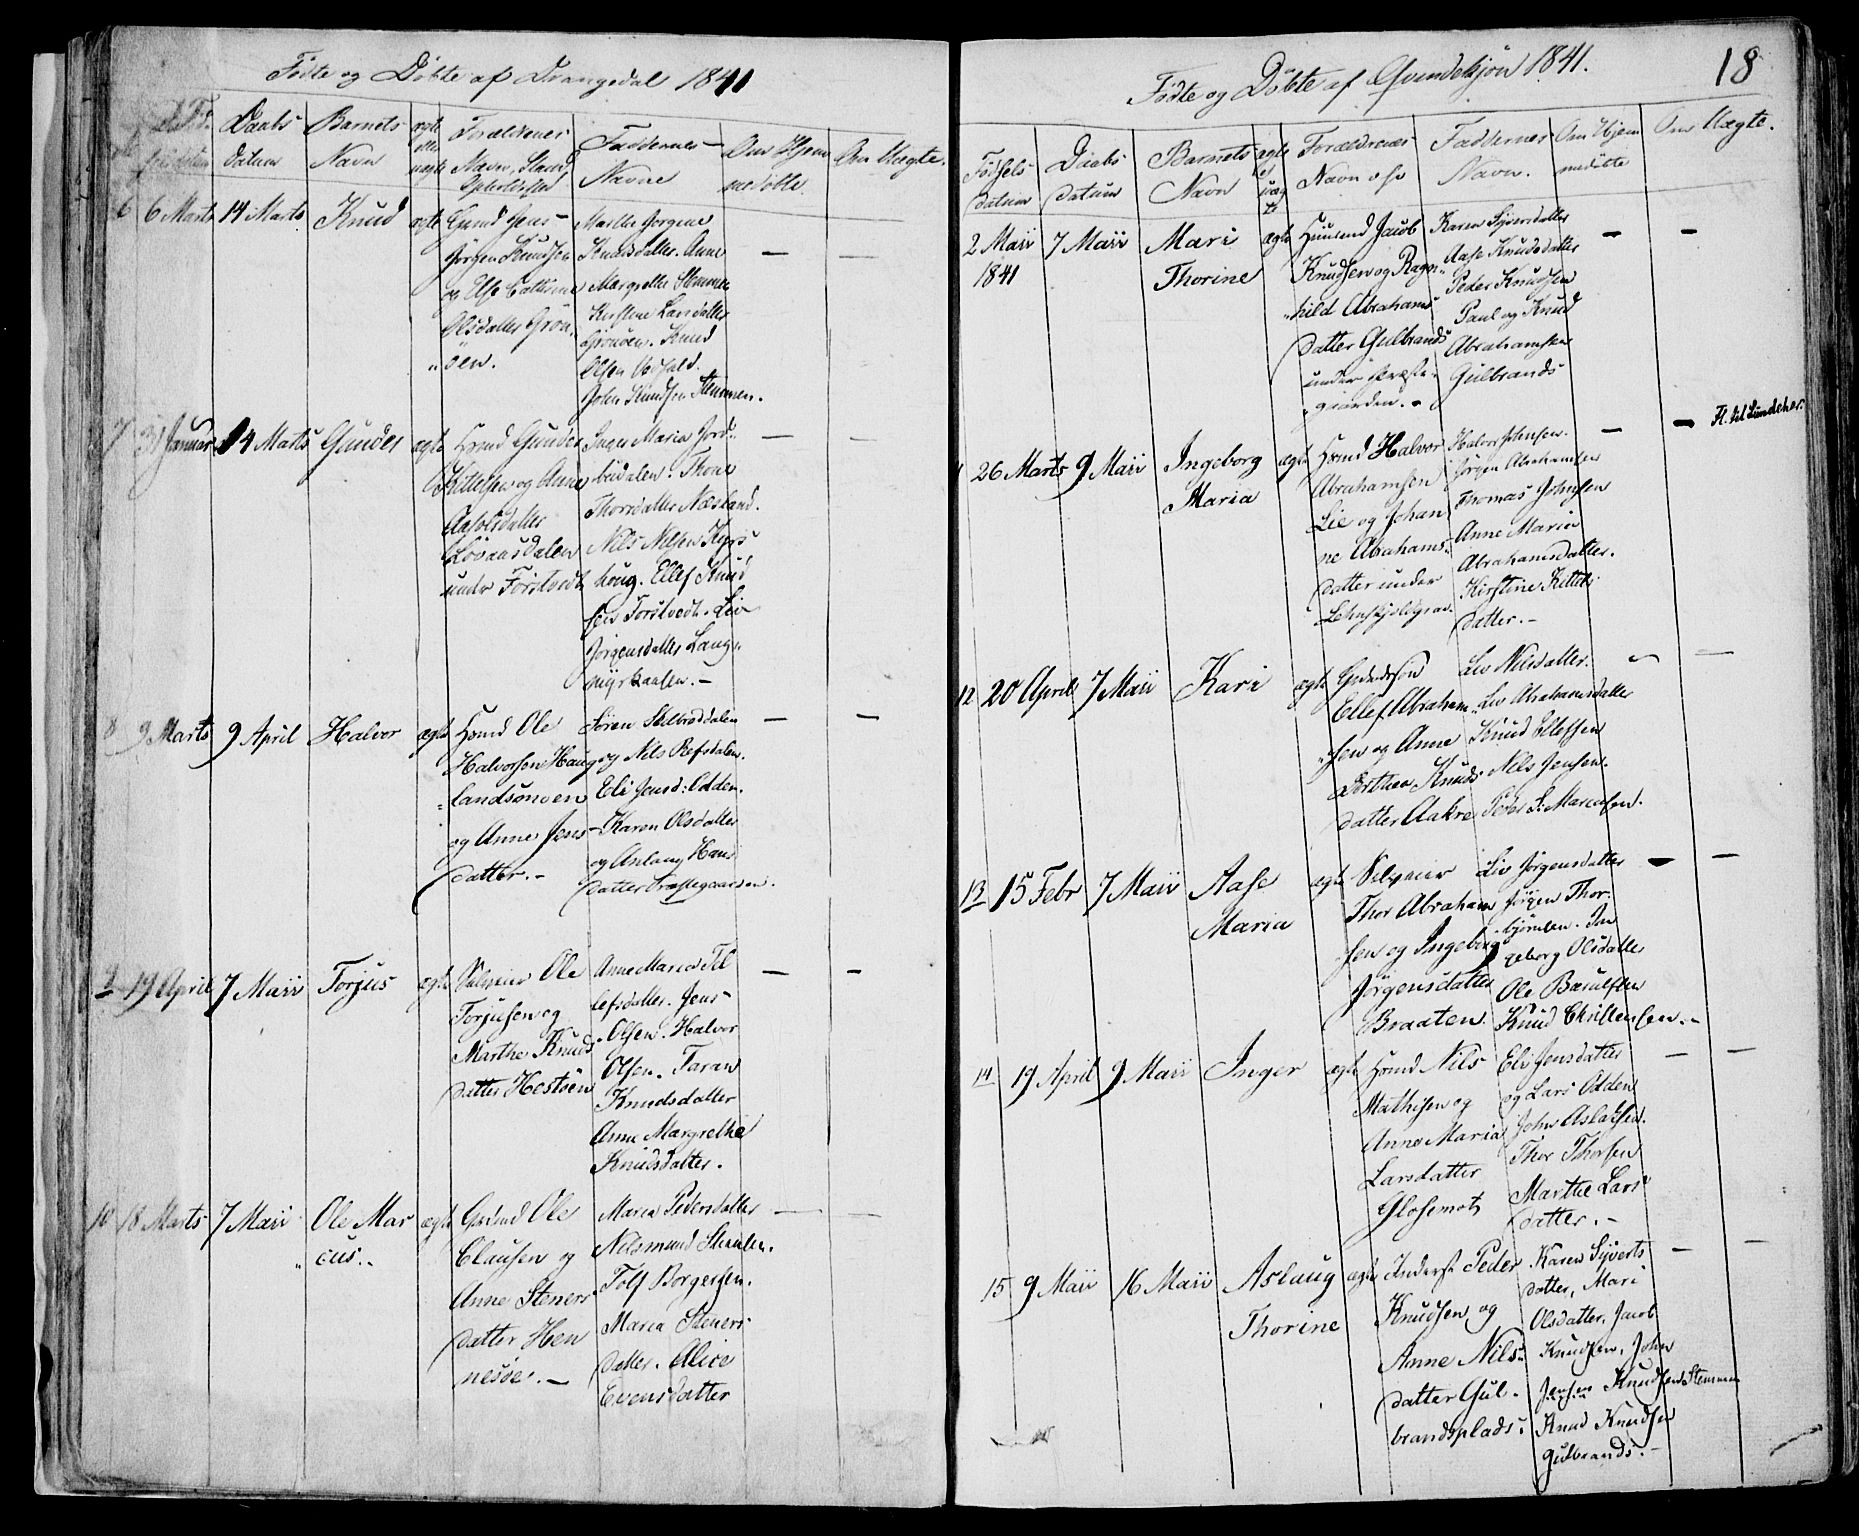 Födte og Döbte af Drangedal 1841
Daabs datum
Barnets Navn
ægte eller uægte
Forældrenes Navn, Stand, Opholdssted
Faddernes Navne
Om Hjemmedöbte
Om Uægte.
6 6 Marts 14 Marts Knud ægte
Jörgen Knudsen
og Else Cathrine
Olsdatter Gröa
„öen.
Marthe Jorgine
Knudsdatter. Anne
Margrethe Stemmen
Kirstine Larsdatter
Gröuöen. Knud
Olsen
John Knudsen Stemmen.
7 31 Januar 14 Marts Gunder ægte
Hmd Gunder
Kittelsen og Anne
Lövaasdalen
under Torstvedt
Inger Maria Jord-
bödalen. Thone
Thorsdatter Næsland.
Nils Nilsen Kyrs
houg. Ellef Knud
sen Torstvedt. Liv
Jörgensdatter Lang-
myrkaalen.-
8 9 Marts 9 April Halvor ægte
Hmd Ole
Halvorsen Haug
landsmoen
og Anne Jens-
datter.-
Sören Stilbroddalen
og Nils Refsdalen.
Eli Jensd: Odden.
Karen Olsdatter
og Anlaug Hans
datter Præstegaarden.
9 19 April 7 Maii Torjus ægte
Selveier Ole
Torjusen og
Marthe Knuds
datter Hestöen
Anne Maria Til
lefsdatter. Jens-
Olsen. Halvor
Olsen. Taran
Knudsdatter
Anne Margrethe
Knudsdatter.
10 18 Marts 7 Maii Ole Mar
cus.. ægte
Grdmd Ole
Clausen og
Anne Steners
datter Hen
nesöe.-
Maria Pedersdatter
Nilsmund Steenlen.
Tolf Borgersen.
Maria Steners
datter. Alice
Evensdatter
Födte og Döbte af Qvindekjön 1841.
18
Födsels datum
Daabs datum
Barnets Navn
ægte e uægte
Forældrenes Navn osv
Faddernes Navn.
Om Hjemmedöbte
Om Uægte.
2 Maii 1841 7 Maii Mari Thorine ægte
Huusmd Jacob
Knudsen og Ragn-
„hild Abrahams
datter Gulbrands
under Præste-
„gaarden.-
Karen Syversdatter
Aase Knudsdatter
Peder Knudsen
Paul og Knud
Abrahamsen
Gulbrands
26 Marts 9 Maii Ingeborg Maria ægte
Hmd Halvor
Abrahamsen
Lie og Johan
ne Abrahams-
datter under
Halvor Johnsen.
Jörgen Abrahamsen
Thomas Johnsen
Anne Maria
Abrahamsdatter.
Kirstine Kittels-
datter.-
Fl. til Sandeher:
12 20 April 7 Maii Kari ægte
Ellef Abraham
„sen og Anne
Dorthea Knuds
datter Aakre
Liv Nilsdatter.
Liv Abrahamsdatter
Knud Ellefsen
Nils Jensen.
Peder S: Marcusen.
13 15 Febr 7 Maii Aase Maria ægte
Selveier
Thor Abraham
sen og Ingeborg
Jörgensdatter
Braaten.
Liv Jörgensdatter
Jörgen Thor-
björnsen. In
geborg Olsdatter
Ole Bærulfsen
Knud Christensen.-
14 19 April 9 Maii Inger ægte
Hmd Nils
Mathisen og
Anne Maria
Larsdatter
Glosemot
Eli Jensdatter
og Lars Odden
John Aslaksen.
Thor Thorsen
Marthe Lars
datter.-
15 9 Maii 16 Maii Aslaug Thorine ægte
Inderst Peder
Knudsen og
Anne Nils-
datter Gul-
brandsplads.
Karen Syverts
datter, Mari
Olsdatter, Jacob
Knudsen, John
Jensen Knudsen Stemmen
Knud Knudsen
Gulbrands.-